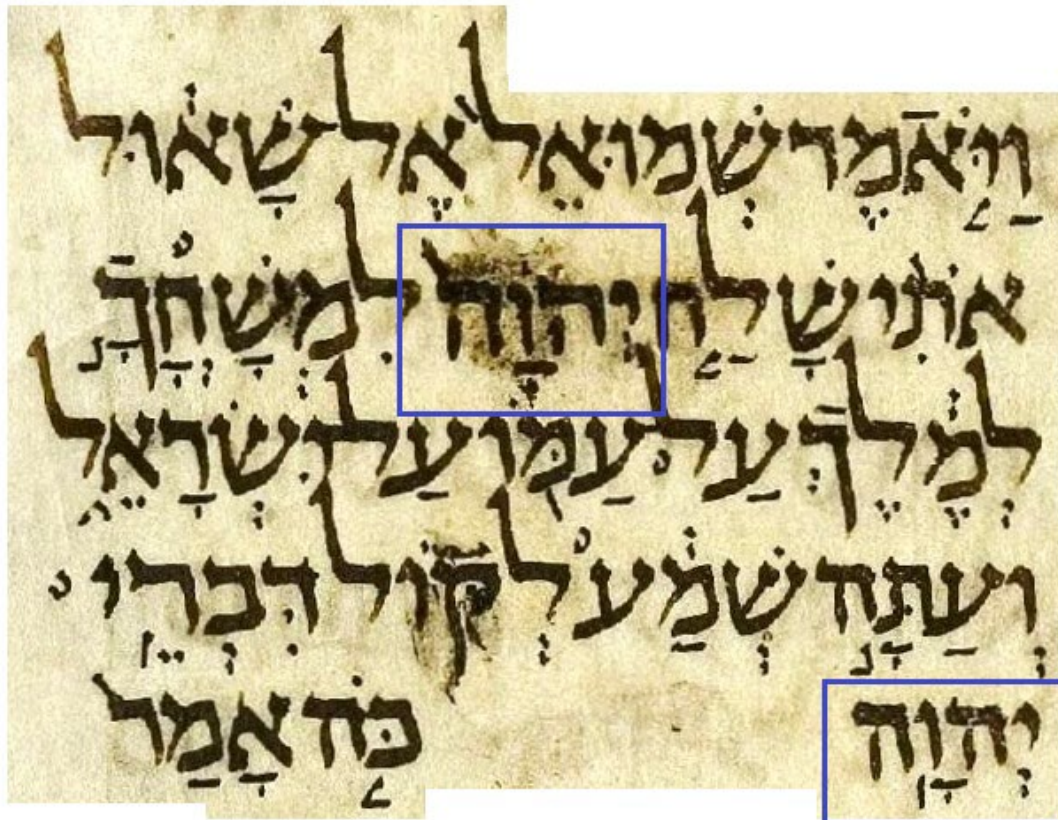 וַיֹּ֤אמֶר שְׁמוּאֵל֙ אֶל שָׁא֔וּל
אֹתִ֨י שָׁלַ֤ח יְהוָה֙ לִמְשָׁחֳךָ֣
לְמֶ֔לֶךְ עַל עַמּ֖וֹ עַל יִשְׂרָאֵ֑ל
וְעַתָּ֣ה שְׁמַ֔ע לְק֖וֹל דִּבְרֵ֥י
יְהוָֽה כֹּ֤ה אָמַר֙